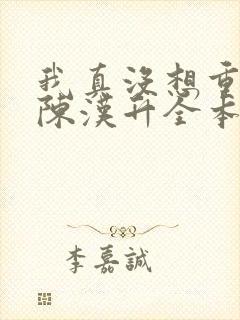 我真沒想重
陳漢升全本
李嘉誠